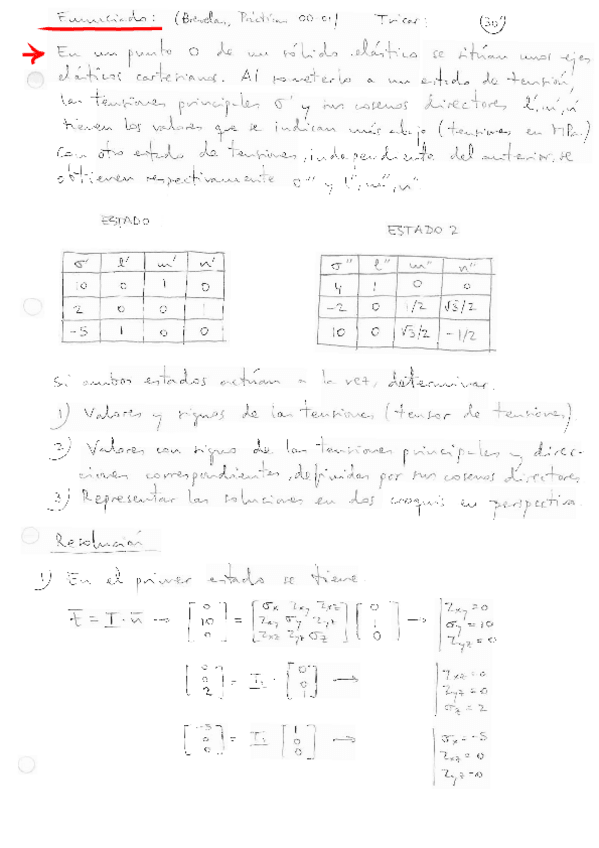 Enunciado: (Bendas, Práctica 00-01) Tricas: (30')
En un punto O de un sólido elástico se sitúan unos ejes
elásticos cartesianos. Al someterlo a un estado de tensión,
las tensiones principales σ' y sus cosenos directores l', m', n'
tienen los valores que se indican más abajo (tensiones en MPa.)
Con otro estado de tensiones, independiente del anterior, se
obtienen respectivamente σ'' y l'', m'', n''.
ESTADO
ESTADO 2
σ' l' m' n'
10 0 1 0
2 0 0 1
-5 1 0 0
σ'' l'' m'' n''
4 1 0 0
-2 0 1/2 √3/2
10 0 √3/2 -1/2
Si ambos estados actúan a la vez, determinar.
1) Valores y signos de las tensiones (tensor de tensiones).
2) Valores con signo de las tensiones principales y direc-
ciones correspondientes, definidas por sus cosenos directores
3) Representar las soluciones en dos croquis en perspectiva.
Resolución
1) En el primer estado se tiene.
t = T · n → [0 10 0] = [σx τxy τxz; τxy σy τyz; τxz τyz σz] [0 1 0] → τxy=0 σy=10 τyz=0
[0 0 2] = T₁ · [0 0 1] → τxz=0 τyz=0 σz=2
[-5 0 0] = T₁ [1 0 0] → σx=-5 τxz=0 τxy=0